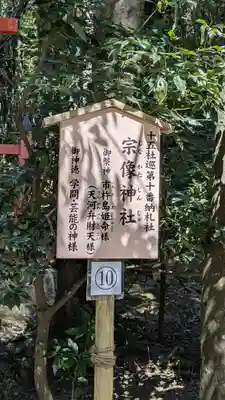 十五社巡第十番納札社
宗像神社
むなかたじんじゃ
御祭神 市杵島姫命様
(天河弁財天様)
御神徳 学問・芸能の神様
⑩